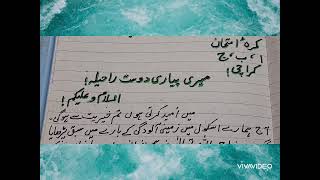 کمرۂ امتحان
ا ، ب ، ج
کراچی !
میری پیاری دوست راحیلہ !
السلام وعلیکم !
میں اُمید کرتی ہوں تم خیریت سے ہوگی۔
آج ہمارے اسکول میں زمینی آلودگی کے بارے میں سبق پڑھایا
VIVAVIDEO